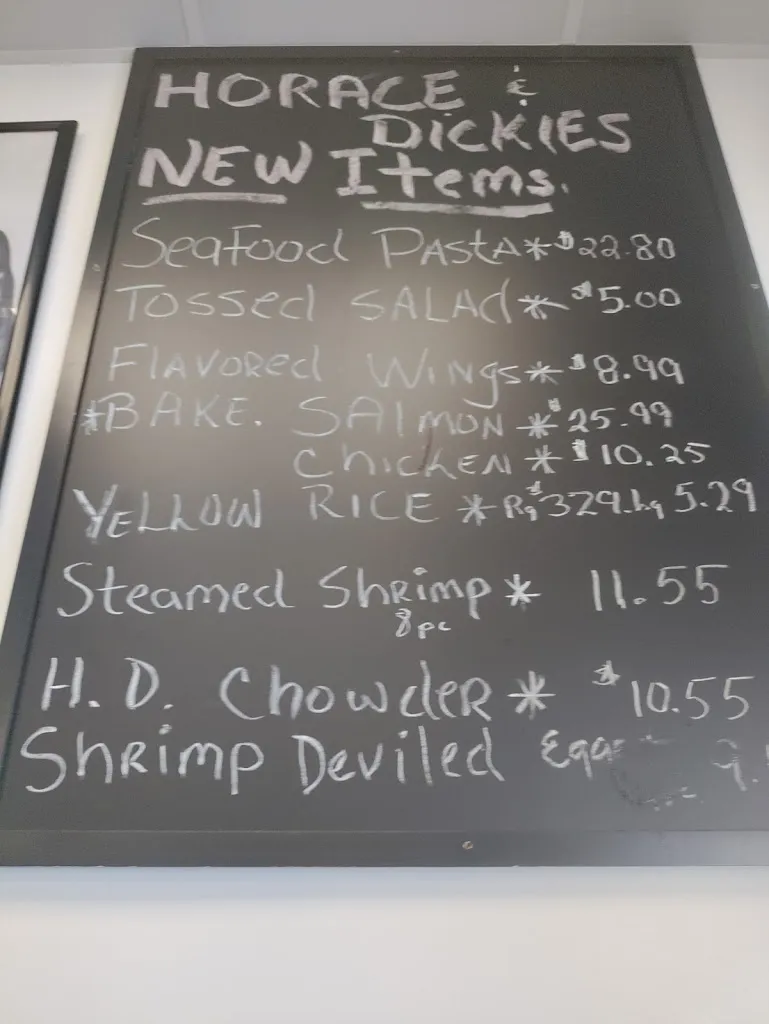 HORACE &
DICKIES
NEW Items.
SeaFood PAStA * $22.80
Tossed SALAd * $5.00
FlAVORed WiNgs * $8.99
*BAKE. SAlMON * $25.99
ChickEN * $10.25
YELLOW RICE * Rg $329. Lg 5.29
Steamed ShRimp * 11.55
8pc
H. D. ChowdeR * $10.55
ShRimp Deviled Eggs